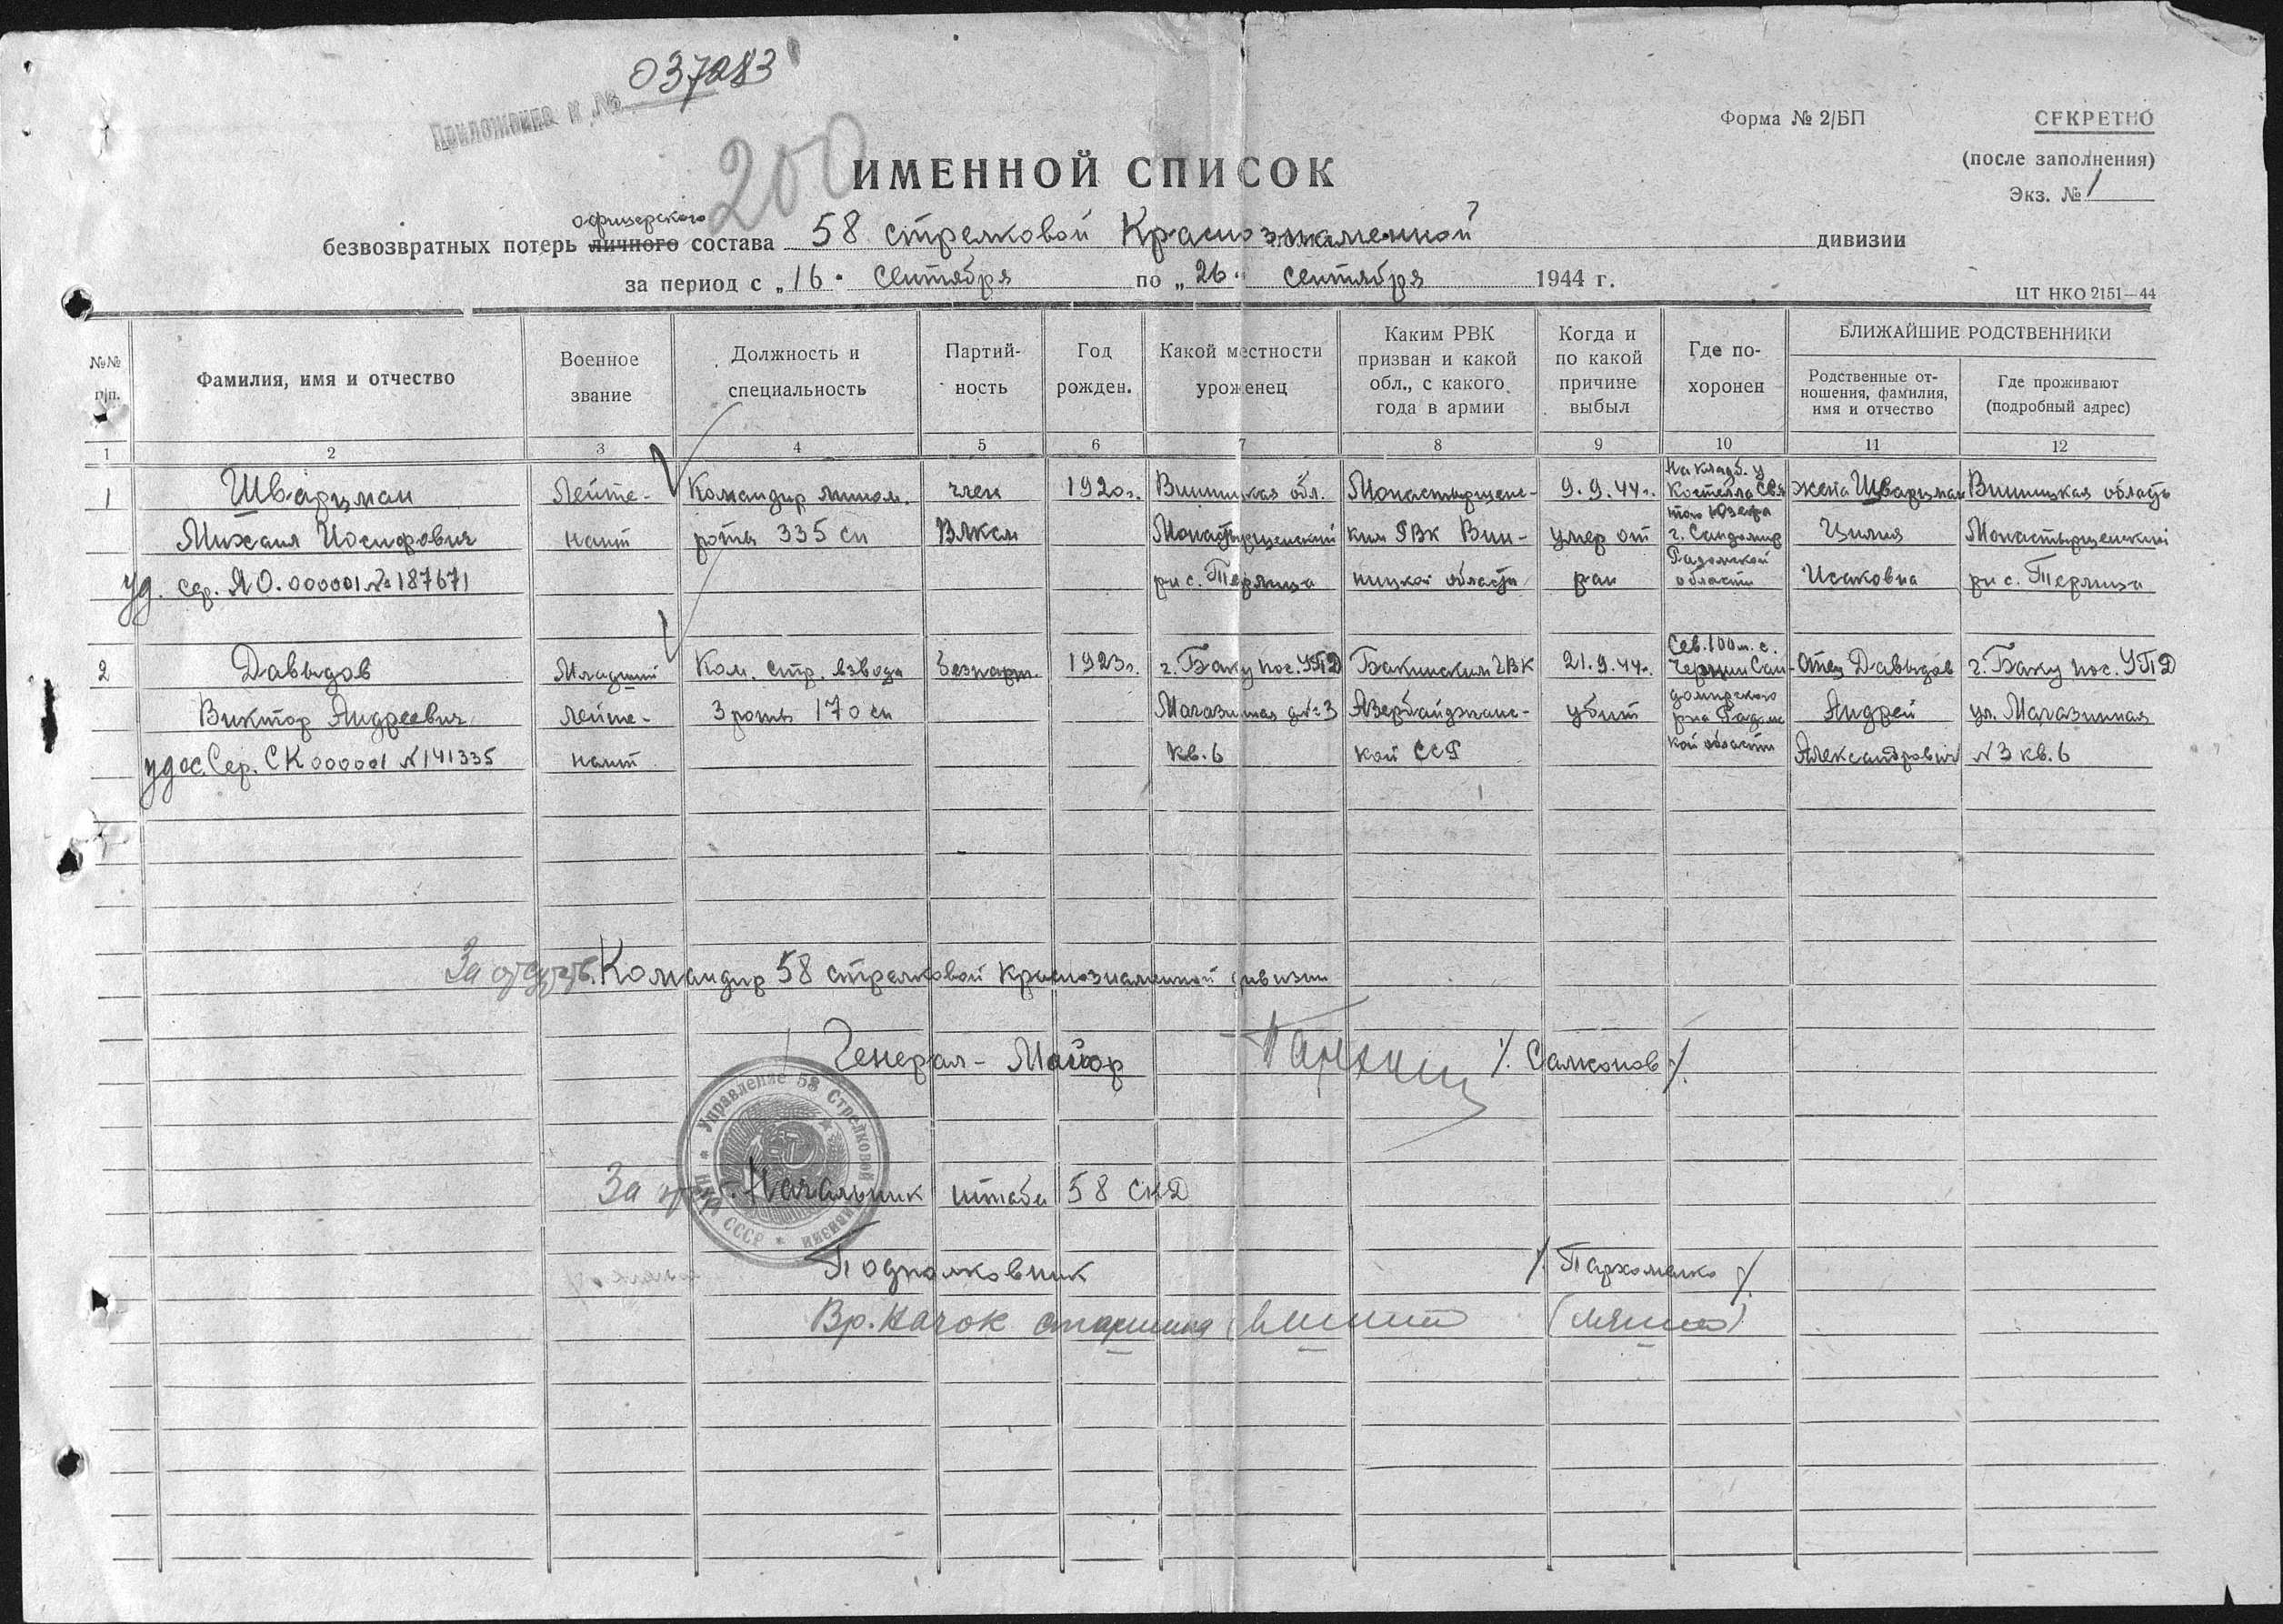 Приложение к № 037283
200
Форма № 2/БП
СЕКРЕТНО
(после заполнения)
Экз. № 1
ИМЕННОЙ СПИСОК
офицерского
безвозвратных потерь личного состава 58 стрелковой Краснознаменной дивизии
за период с „16" сентября по „26" сентября 1944 г.
ЦТ НКО 2151—44
№№ п/п.
Фамилия, имя и отчество
Военное звание
Должность и специальность
Партий-
ность
Год рожден.
Какой местности уроженец
Каким РВК
призван и какой
обл., с какого
года в армии
Когда и
по какой
причине
выбыл
Где по-
хоронен
БЛИЖАЙШИЕ РОДСТВЕННИКИ
Родственные от-
ношения, фамилия,
имя и отчество
Где проживают
(подробный адрес)
1 2 3 4 5 6 7 8 9 10 11 12
1
Шварцман
Михаил Иосифович
уд. сер. ЯО. 000001 № 187671
Лейте-
нант
Командир мином.
роты 335 сп
член
ВЛКСМ
1920 г.
Винницкая обл.
Монастырщенский
р-н с. Терлица
Монастырщенс-
ким РВК Вин-
ницкой области
9.9.44 г.
умер от
ран
На кладб. у
Костелла Свя
того Юзефа
г. Сандомир
Радомской
области
жена Шварцман
Цилия
Исаковна
Винницкая область
Монастырщенский
р-н с. Терлица
2
Давыдов
Виктор Андреевич
удос. Сер. СК 000001 № 141335
Младший
Лейте-
нант
Ком. стр. взвода
3 роты 170 сп
безпарт.
1923 г.
г. Баку пос. УПД
Магазинная д № 3
кв. 6
Бакинским ГВК
Азербайджанс-
кой ССР
21.9.44 г.
убит
Сев. 100 м. с.
Чернин Сан-
домирского
р-на Радомс
кой области
Отец Давыдов
Андрей
Александрович
г. Баку пос. УПД
ул. Магазинная
№ 3 кв. 6
За отсутств. Командир 58 стрелковой Краснознаменной дивизии
Генерал-Майор /. Самсонов /.
Управление 58 Стрелковой дивизии
НКО СССР
За Начальник штаба 58 СКД
Подполковник /. Пархоменко /.
Вр. Начок старшина